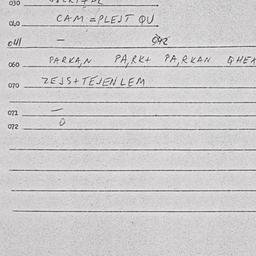 030
040 CAM = PLEJT QU
041 – 042
060 PARKA,N PA,RK+ PA,RKAN
070 ZEJS+TEJEN LEM
071 –
072 0